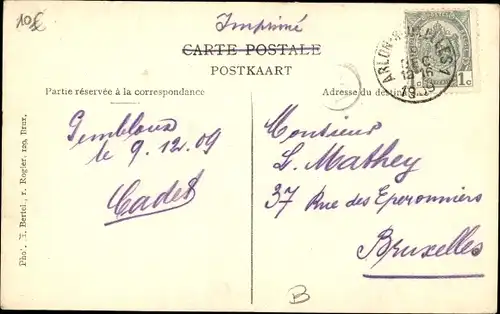 10€
Imprimé
CARTE POSTALE
POSTKAART
Partie réservée à la correspondance
Adresse du destin
ARLON
DEC
1909
1c
Gembloux
le 9.12.09
Cadet
Monsieur
L. Mathey
37 Rue des Eperonniers
Bruxelles
B
Pho'. H. Bertels, r. Rogier, 129, Brux.